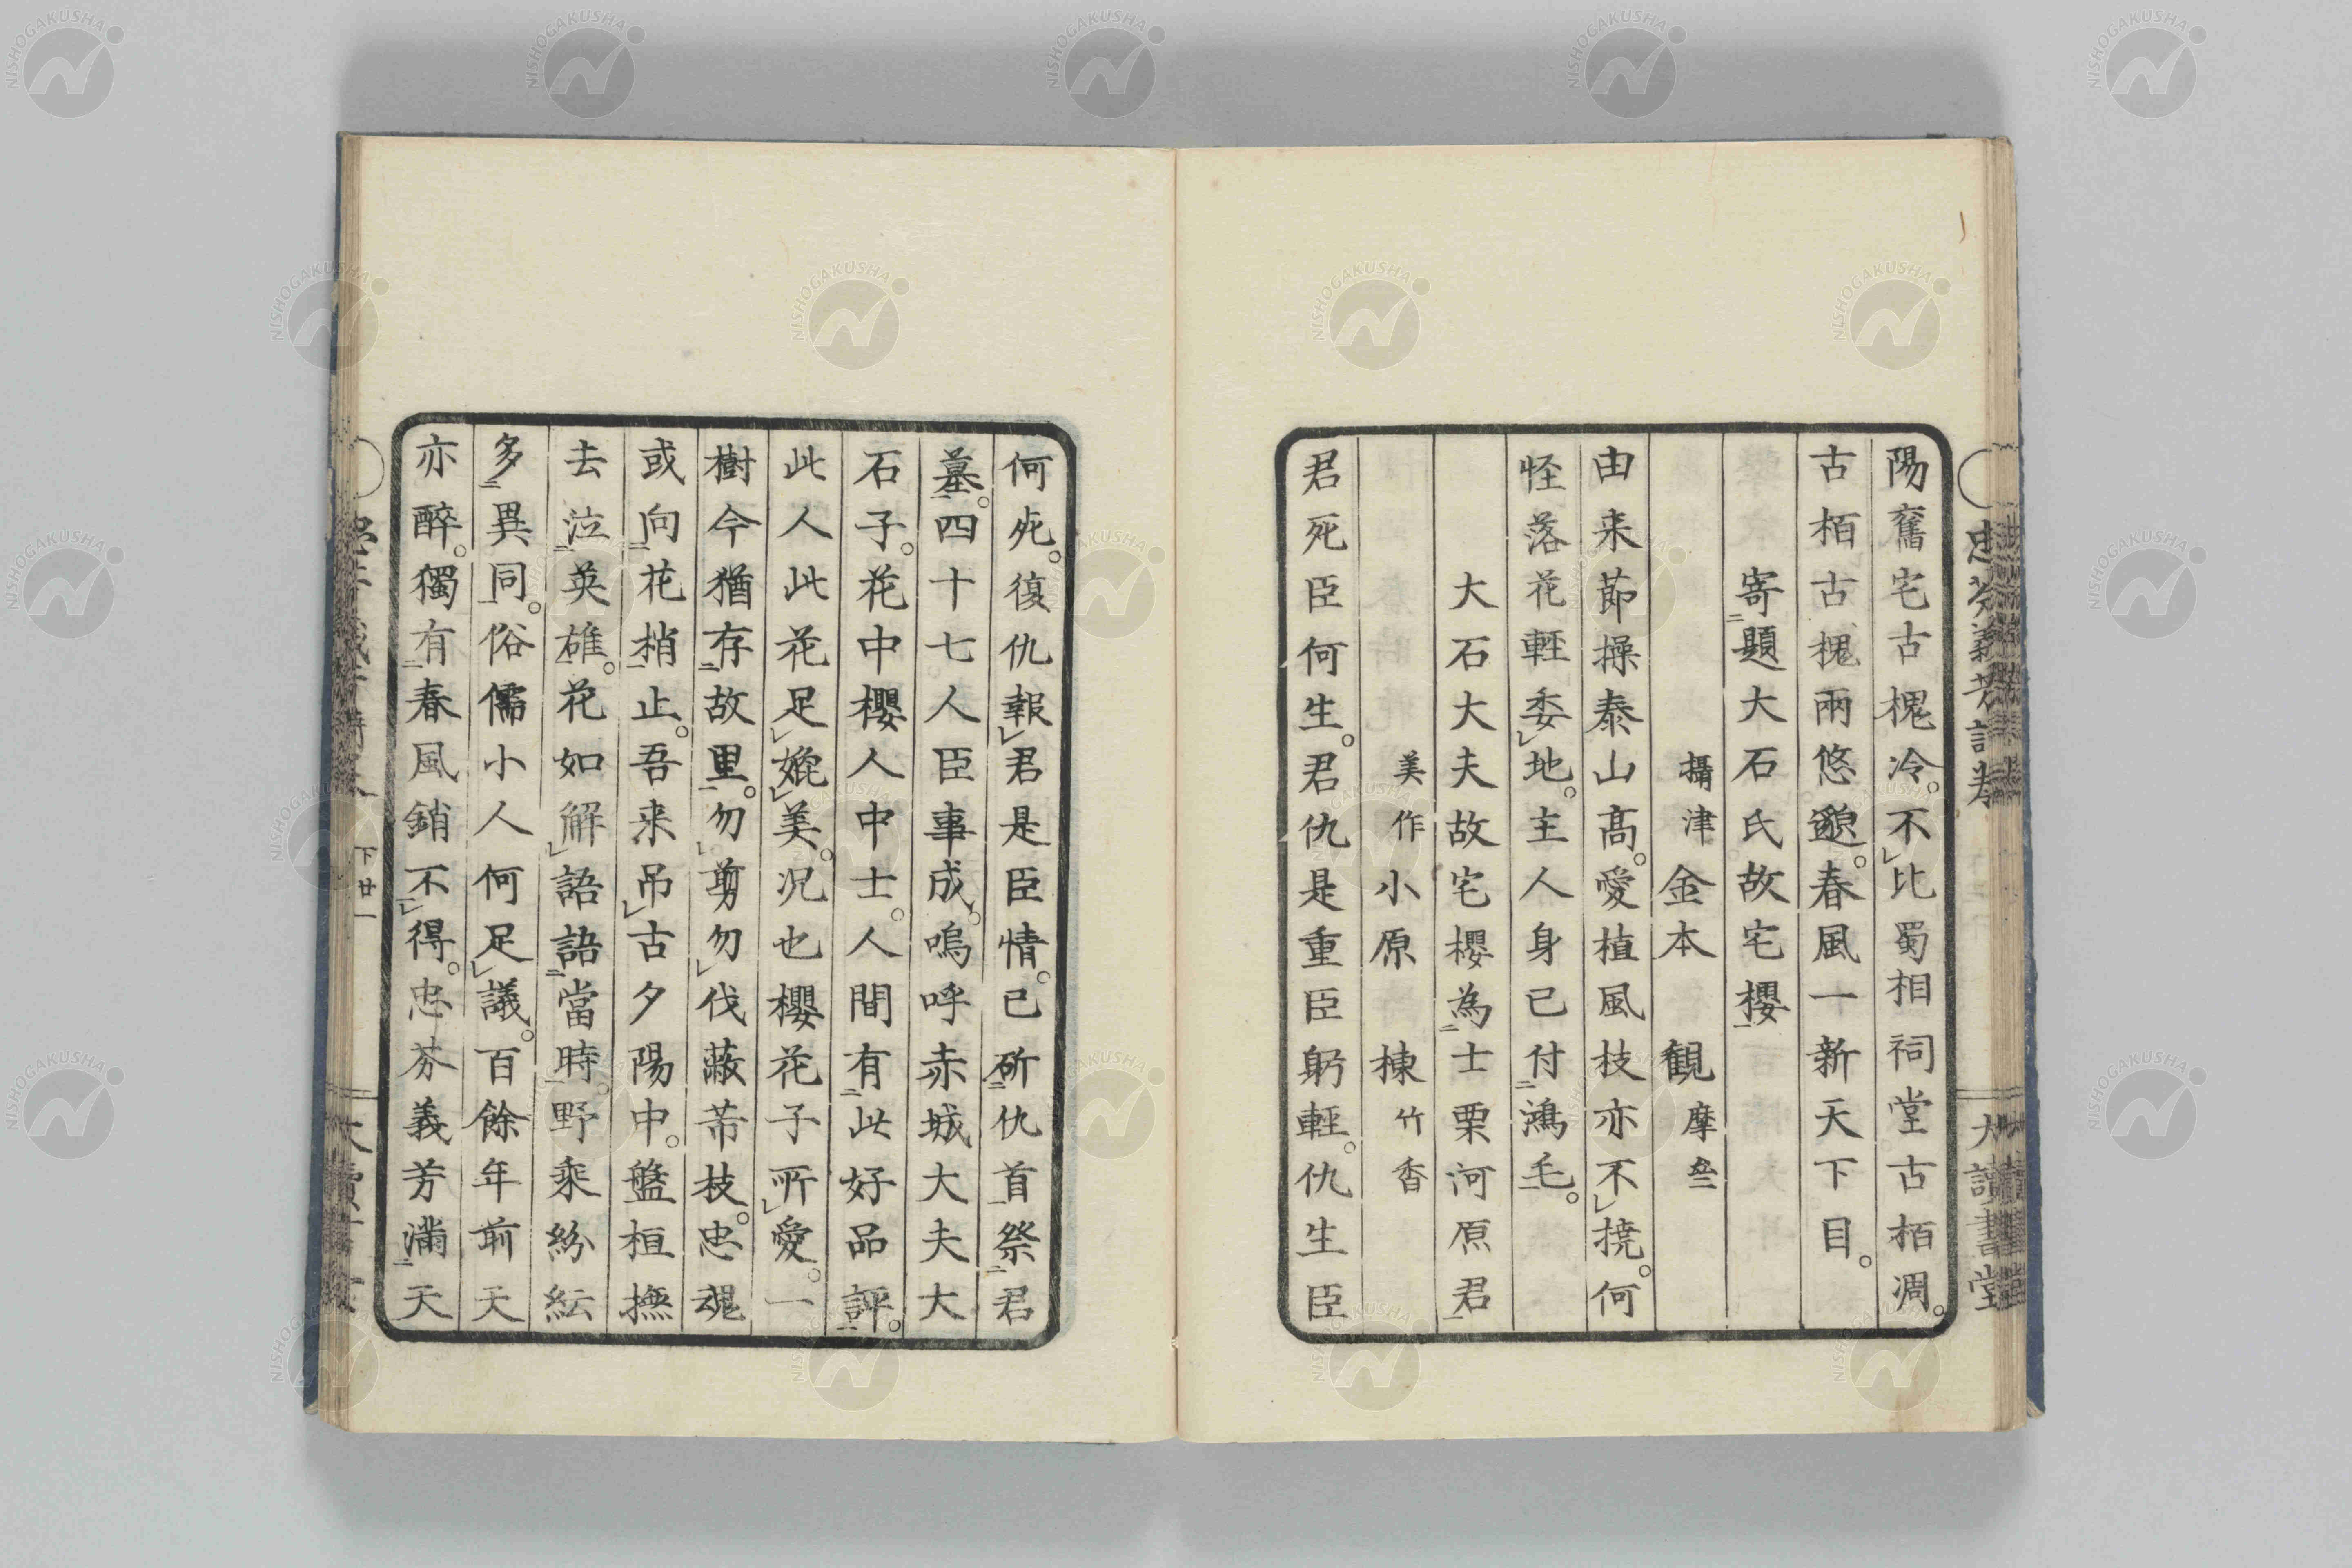 陽奮宅古槐冷。不比蜀相祠堂古栢凋。
古栢古槐兩悠邈。春風一新天下目。
寄題大石氏故宅櫻
攝津 金本 觀 摩쑢
由来節操泰山高。愛植風枝亦不撓。何
怪落花輕委地。主人身已付鴻毛。
大石大夫故宅櫻為士栗河原君
美作 小原 棟 竹香
君死臣何生。君仇是重臣躬輕。仇生臣
何死。復仇報君是臣情。已斫仇首祭君
墓。四十七人臣事成。嗚呼赤城大夫大
石子。花中櫻人中士。人間有此好品評。
此人此花足媲美。况也櫻花子所愛。一
樹今猶存故里。勿剪勿伐蔽芾枝。忠魂
或向花梢止。吾来吊古夕陽中。盤桓撫
去泣英雄。花如解語語當時。野乘紛紜
多異同。俗儒小人何足議。百餘年前天
亦醉。獨有春風銷不得。忠芬義芳滿天
下廿一
大讀書堂
NISHOGAKUSHA